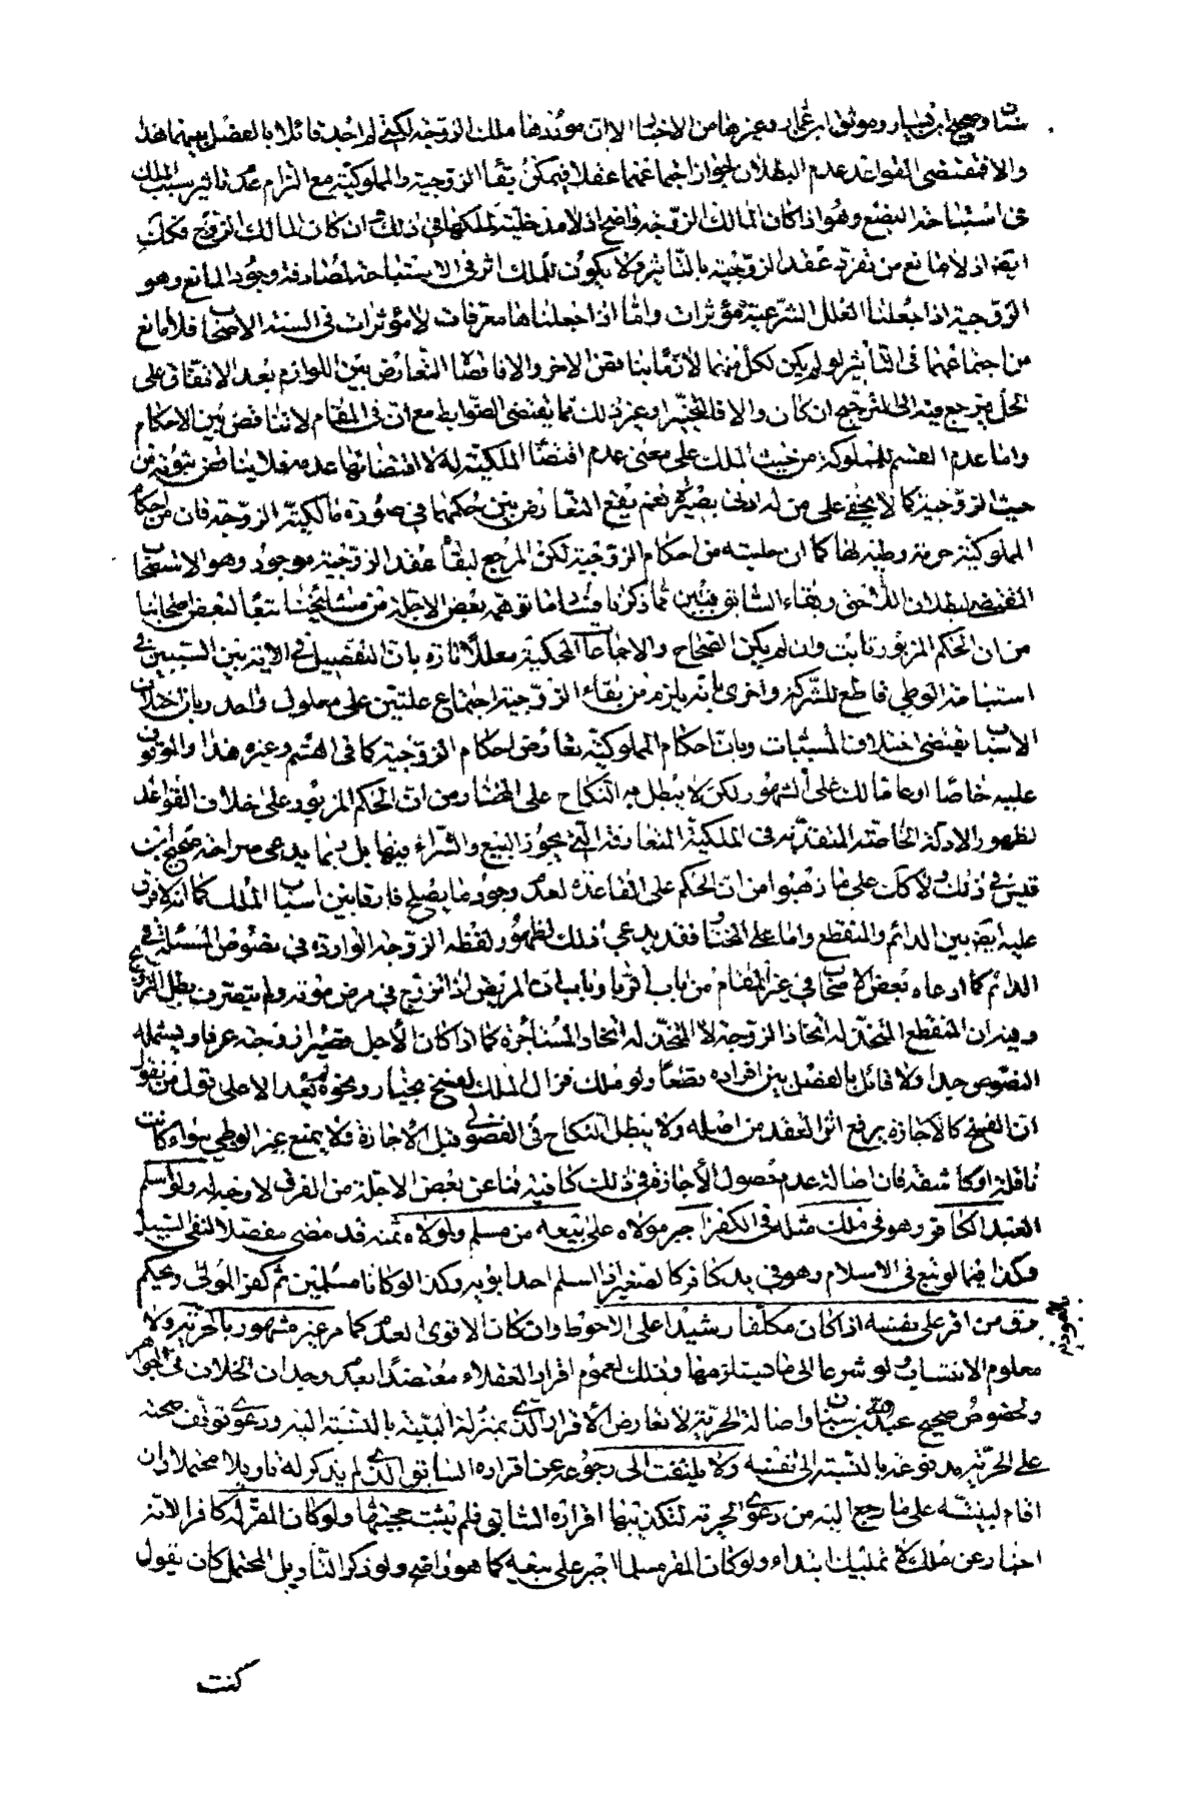 سنان وصحيح ابن يسار وموثق ابن عمار وغيرها من الاخبار الا ان مورّدها ملك الزوجة لكني لم اجد قائلا بالفصل بينهما هذا
والا فمقتضى القواعد عدم البطلان لجواز اجتماعهما عقلا فيمكن بقاء الزوجية والمملوكية مع التزام عدم تاثير سبب الملك
فى استباحة البضع وهو اذا كان المالك الزوجة واضح اذ لا مدخلية لملكها فى ذلك وان كان المالك الزوج فكك
ايضا اذ لا مانع من تفرد عقد الزوجية بالتاثير ولا يكون للملك اثر فى الاستباحة لمصادفة وجود المانع وهو
الزوجية اذا جعلنا العلل الشرعية مؤثرات واما اذا جعلناها معرفات لا مؤثرات فى السنة الاصحاب فلا مانع
من اجتماعهما فى التأثير لو لم يكن لكل منهما لازم يناقض الاخر والا فاقتضاء التعارض بين اللوازم بعد الاتفاق على
الحل يرجع فيه الى الترجيح ان كان والا فالتخيير او غير ذلك مما يقتضى الضوابط مع ان فى المقام لا تناقض بين الاحكام
واما عدم القسم للمملوكة من حيث الملك على معنى عدم اقتضاء الملكية له لا اقتضائها عدمه فلا يناقض ثبوته من
حيث الزوجية كما لا يخفى على من له ادنى بصيرة نعم يقع التعارض بين حكمهما فى صورة مالكية الزوجة فان من احكام
المملوكية حرمة وطيه لها كما ان حليته من احكام الزوجية لكن المرجع لبقاء عقد الزوجية موجود وهو الاستصحاب
المقتضى لبطلان اللاحق وبقاء السابق فتبين مما ذكرنا فساد ما توهمه بعض الاجلة من مشايخنا تبعا لبعض اصحابنا
من ان الحكم المزبور ثابت وان لم يكن الصحاح والاجماعات المحكية معللا تارة بان التفصيل فى الاية بين السببين فى
استباحة الوطى قاطع للشركة واخرى بانه يلزم من بقاء الزوجية اجتماع علتين على معلول واحد وبان اختلاف
الاسباب يقتضى اختلاف المسببات وبان احكام المملوكية تعارض احكام الزوجية كما فى القسم وغيره هذا والموقوف
عليه خاصا او عاما كالملك على المشهور لكن لا يبطل به النكاح على المختار من ان الحكم المزبور على خلاف القواعد
لظهور الادلة الخاصة المتقدمة فى الملكية المتعارفة التى يجوز البيع والشراء فيها بل ربما يدعى صراحة صحيح ابن
قيس فى ذلك ولا كك على ما ذهبوا من ان الحكم على القاعدة لعدم وجود ما يصلح فارقا بين اسباب الملك كما انه لا فرق
عليه ايضا بين الدائم والمنقطع واما على المختار فقد يدعى ذلك لظهور لفظه الزوجة الواردة فى نصوص المسئلة فى
الدائم كما ادعاه بعض الاصحاب فى غير المقام من باب الربا وباب ان المريض اذا تزوج فى مرض موته ولم يتصرف بطل التزويج
وفيه ان المنقطع المتخذ له اتخاذ الزوجة لا المتخذ له اتخاذ المستأجرة كما اذا كان الاجل قصيرا زوجة عرفا ويشمله
النصوص جدا ولا قائل بالفصل بين افراده قطعا ولو ملك فزال الملك لفسخ بخيار ونحوه لم يعد الا على قول من يقول
ان الفسخ كالاجازة يرفع اثر العقد من اصله ولا يبطل النكاح فى الفضولى قبل الاجازة فلا يمنع عن الوطى سواء كانت
ناقلة او كاشفة فان اصالة عدم حصول الأجازة فى ذلك كافية فما عن بعض الاجلة من الفرق لا وجه له ولو اسلم
العبد الكافر وهو فى ملك مثله فى الكفر اجبر مولاه على بيعه من مسلم ولمولاه ثمنه قد مضى مفصلا لنفى السبيل
وكذا فيما لو بيع فى الاسلام وهو فى يد كافر كالصغير اذا اسلم احد ابويه وكذا لو كانا مسلمين ثم كفر المولى ويحكم
برق من اقر على نفسه اذا كان مكلفا رشيدا على الاحوط وان كان الاقوى العدم كما مر غير مشهور بالحرية ولا
معلوم الانتساب لو شرعا الى ما يستلزمها وذلك لعموم اقرار العقلاء معتضدا بعدم وجدان الخلاف فى الجواهر
ولخصوص صحيح عبد الله بن سنان واصالة الحرية لا تعارض الاقرار الذى بمنزلة البينة بالنسبة اليه ودعوى توقف صحته
على الحرية مدفوعة بالنسبة الى نفسه ولا يلتفت الى رجوعه عن اقراره السابق الذى لم يذكر له تاويلا محتملا وان
اقام لبينته على ما رجع اليه من دعوى الحرية لتكذيبهما اقراره السابق فلم يثبت حجيتها ولو كان المقر له كافرا لانه
اخبار عن ملك لا تمليك ابتداء ولو كان المقر مسلما اجبر على بيعه كما هو واضح ولو ذكر التأويل المحتمل كان يقول
كنت